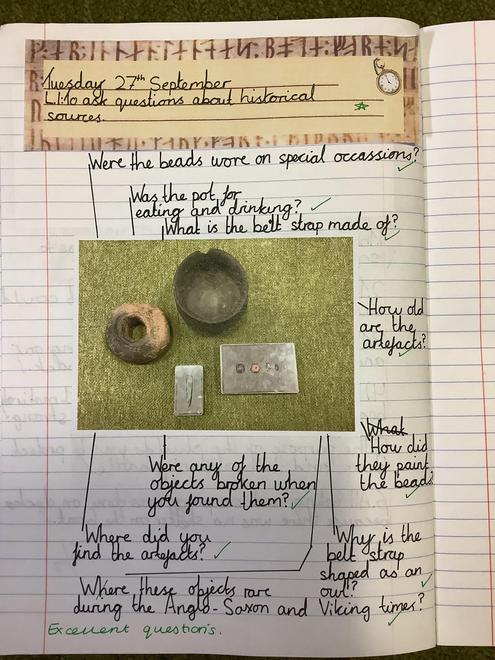 Tuesday 27th September
L.I: To ask questions about historical
sources.
Were the beads wore on special occassions?
Was the pot for
eating and drinking?
What is the belt strap made of?
How old
are the
artefacts?
What
How did
they paint
the beads
Were any of the
objects broken when
you found them?
Where did you
find the artefacts?
Why is the
belt strap
shaped as an
owl?
Where these objects rare
during the Anglo-Saxon and Viking times?
Excellent questions.